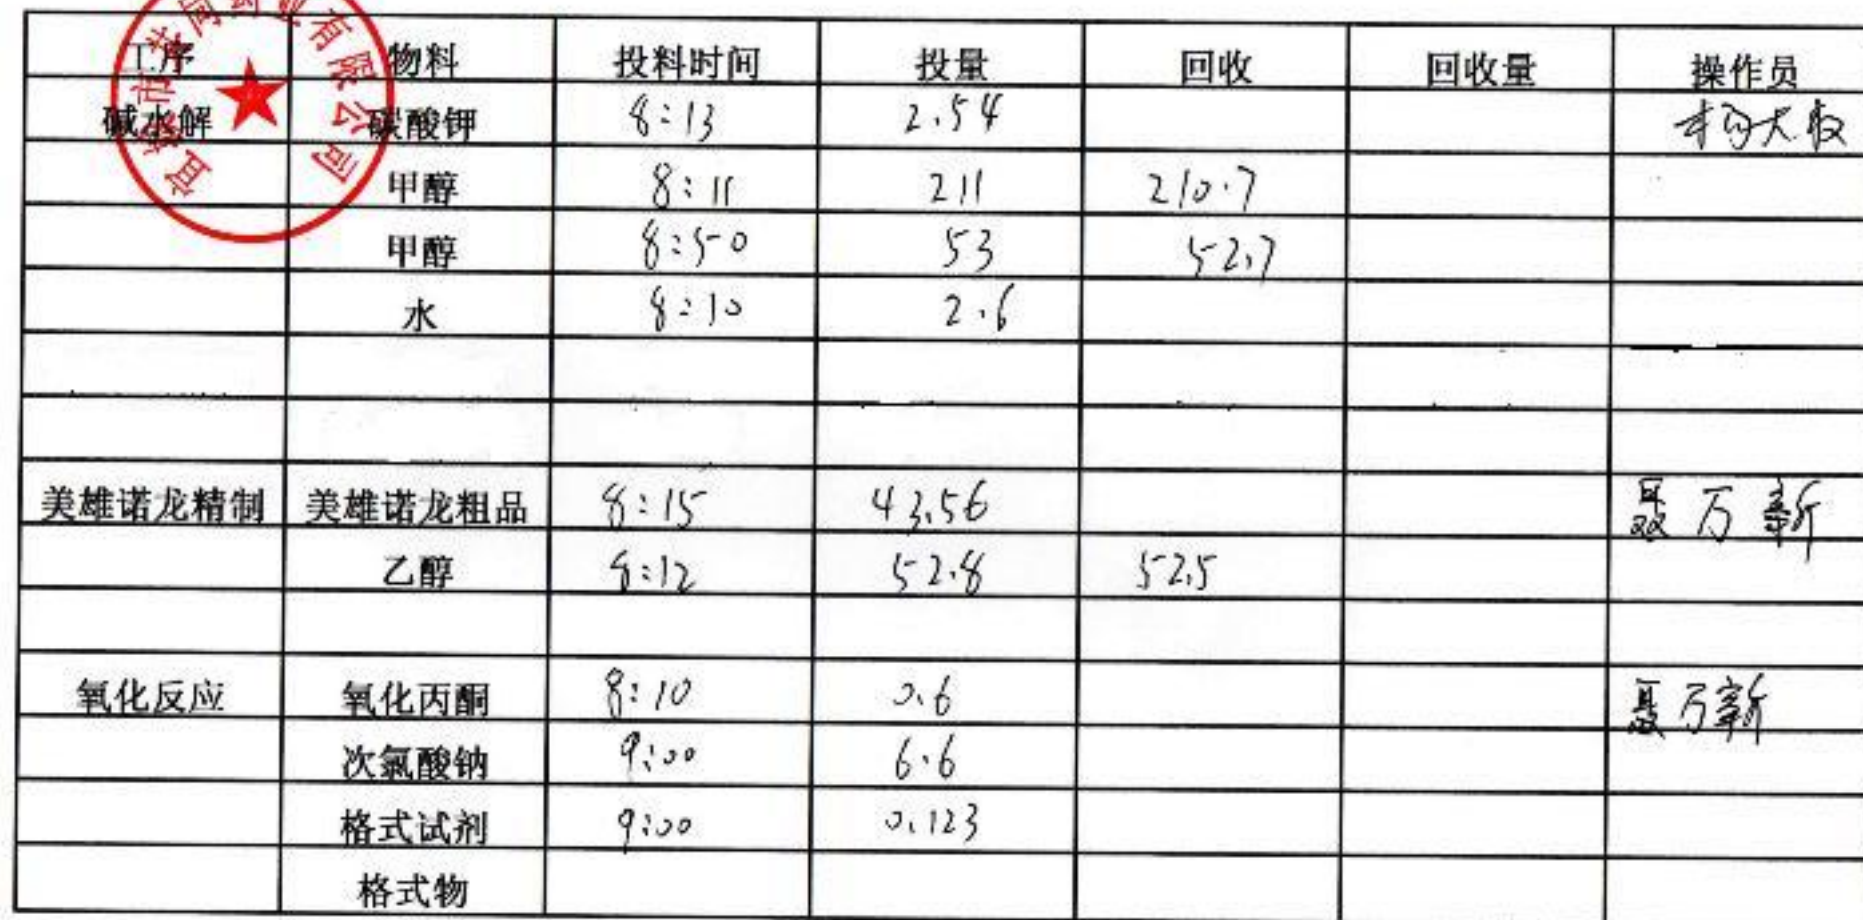 工序 物料 投料时间 投量 回收 回收量 操作员
碱水解 碳酸钾 8:13 2.54
甲醇 8:11 211 210.7
甲醇 8:50 53 52.7
水 8:10 2.6
美雄诺龙精制 美雄诺龙粗品 8:15 43.56 聂万新
乙醇 8:12 52.8 52.5
氧化反应 氧化丙酮 8:10 0.6 聂万新
次氯酸钠 9:00 6.6
格式试剂 9:00 0.123
格式物